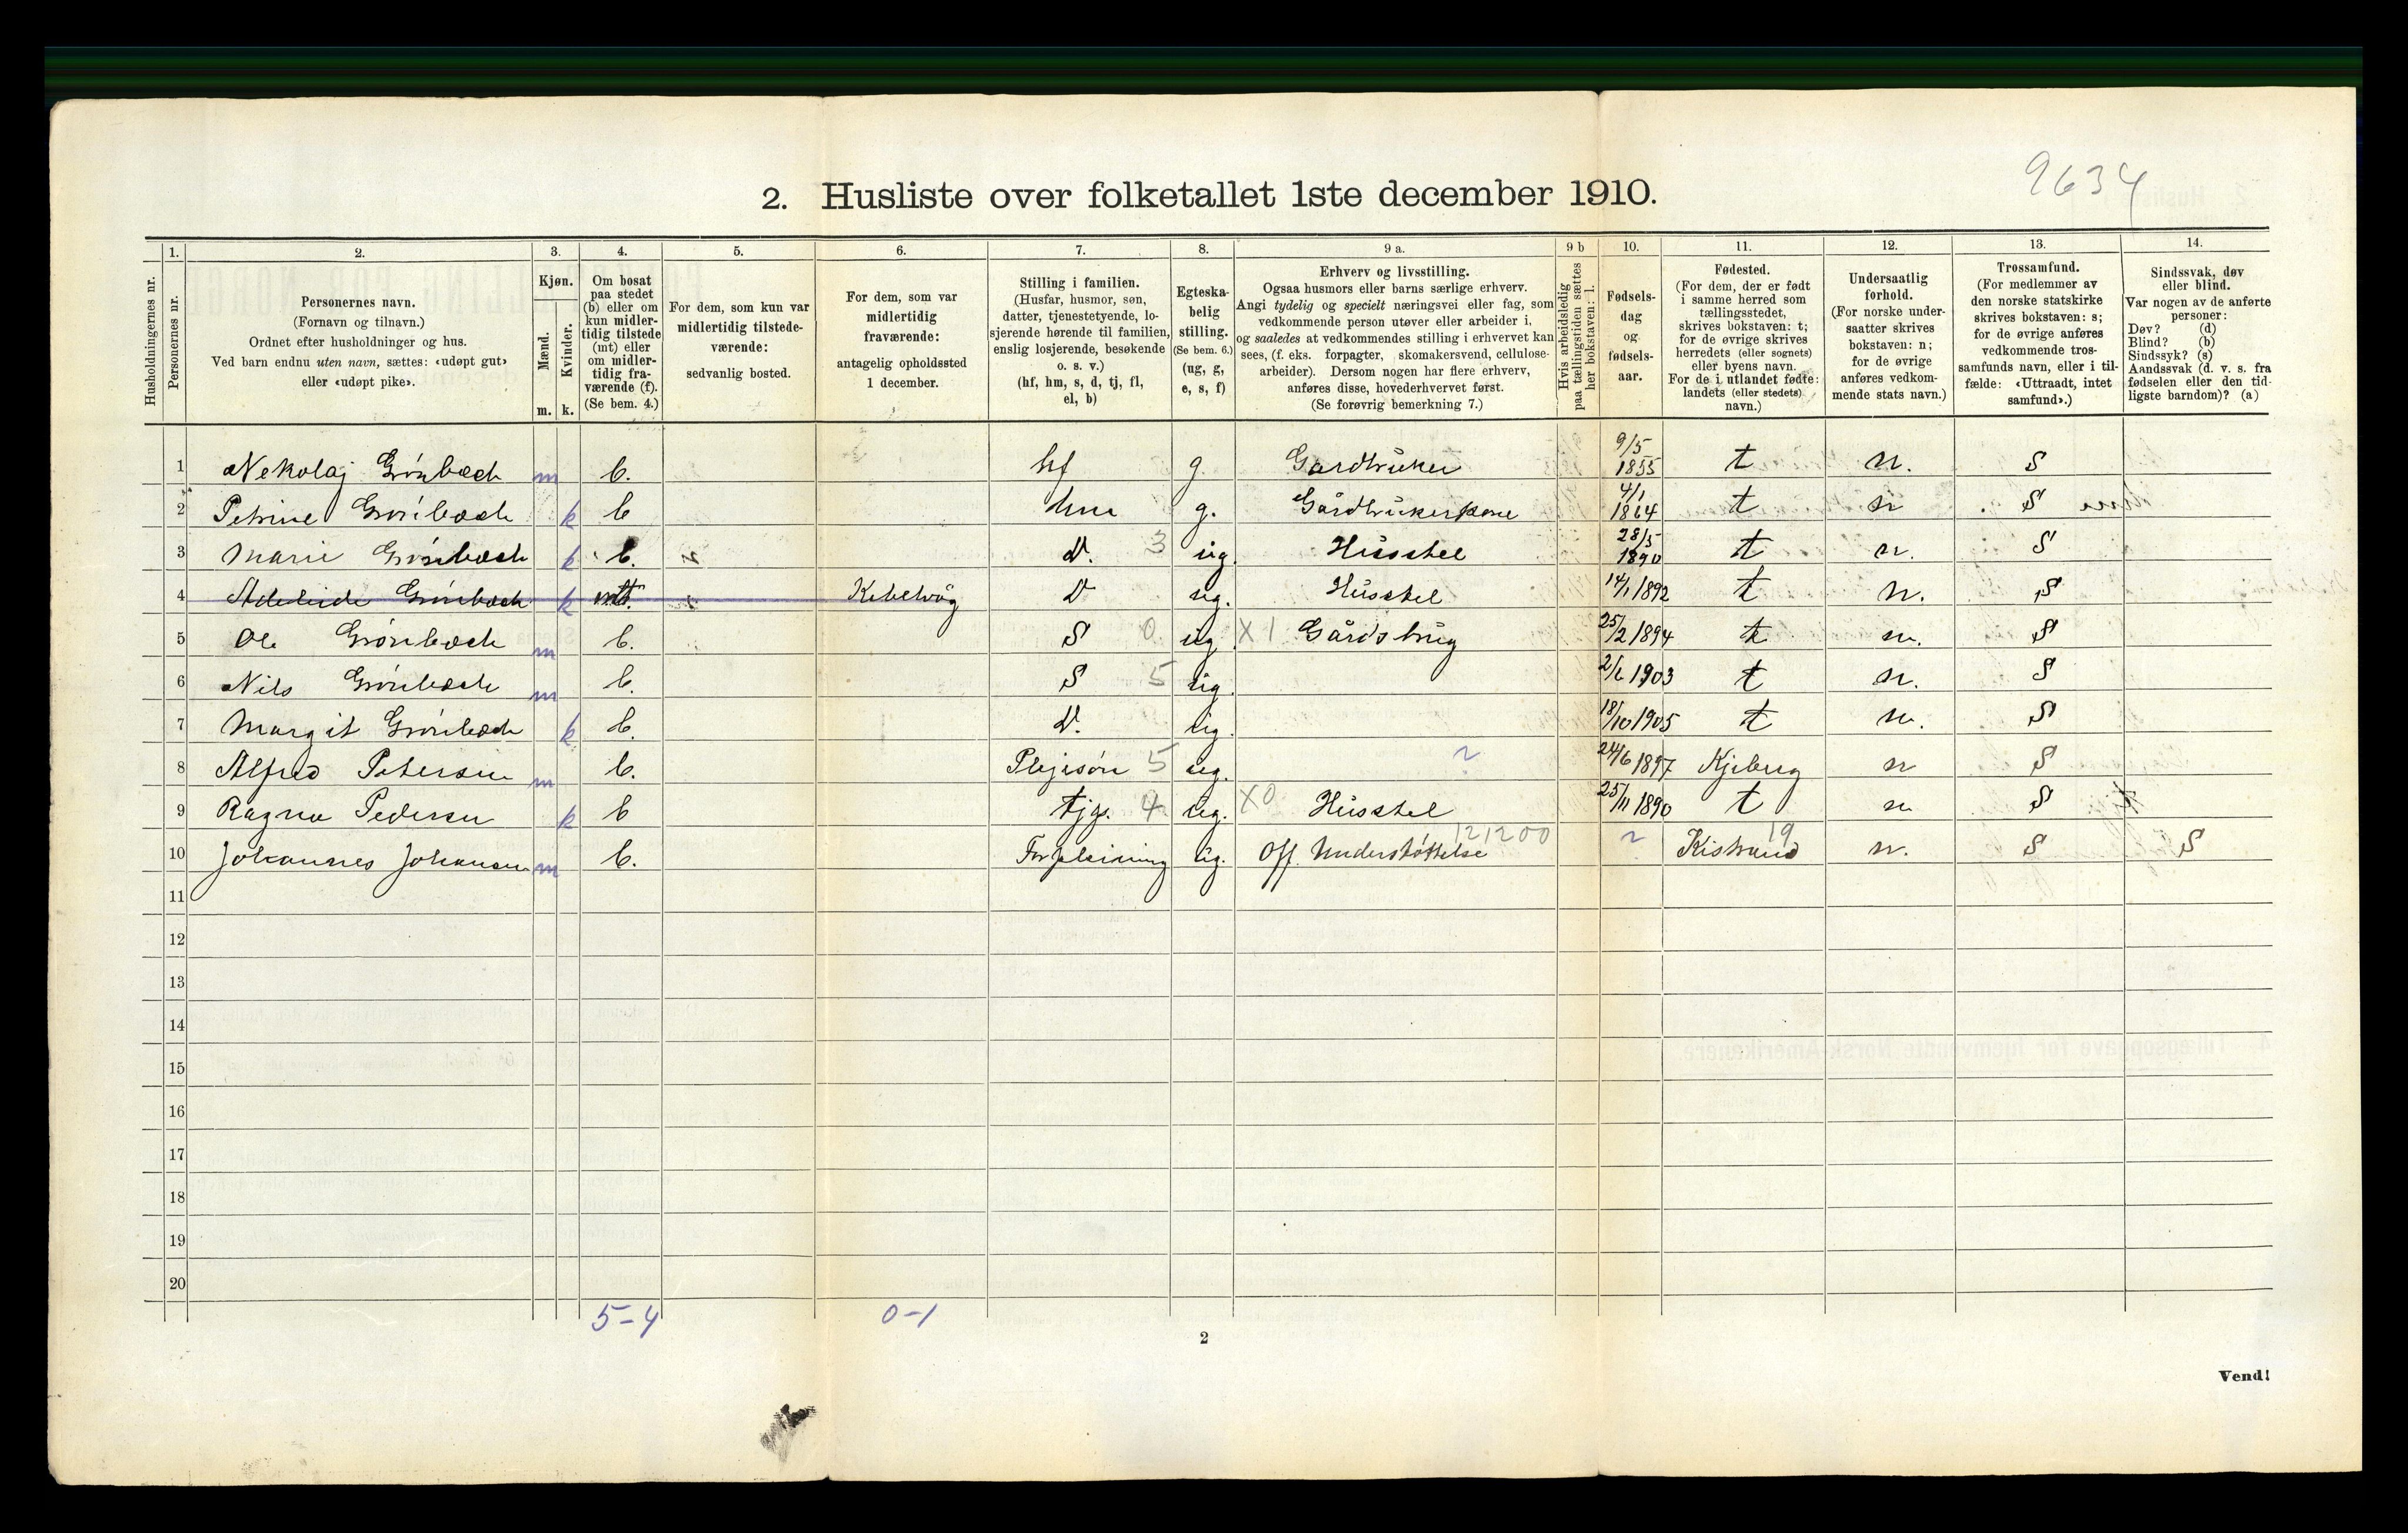 9634
2. Husliste over folketallet 1ste december 1910.
Husholdningernes nr.
1.
Personernes nr.
2.
Personernes navn.
(Fornavn og tilnavn.)
Ordnet efter husholdninger og hus.
Ved barn endnu uten navn, sættes: «udøpt gut»
eller «udøpt pike».
3.
Kjøn.
Mænd.
Kvinder.
m. k.
4.
Om bosat
paa stedet
(b) eller om
kun midler-
tidig tilstede
(mt) eller
om midler-
tidig fra-
værende (f).
(Se bem. 4.)
5.
For dem, som kun var
midlertidig tilstede-
værende:
sedvanlig bosted.
6.
For dem, som var
midlertidig
fraværende:
antagelig opholdssted
1 december.
7.
Stilling i familien.
(Husfar, husmor, søn,
datter, tjenestetyende, lo-
sjerende hørende til familien,
enslig losjerende, besøkende
o. s. v.)
(hf, hm, s, d, tj, fl,
el, b)
8.
Egteska-
belig
stilling.
(Se bem. 6.)
(ug, g,
e, s, f)
9 a.
Erhverv og livsstilling.
Ogsaa husmors eller barns særlige erhverv.
Angi tydelig og specielt næringsvei eller fag, som
vedkommende person utøver eller arbeider i,
og saaledes at vedkommendes stilling i erhvervet kan
sees, (f. eks. forpagter, skomakersvend, cellulose-
arbeider). Dersom nogen har flere erhverv,
anføres disse, hovederhvervet først.
(Se forøvrig bemerkning 7.)
9 b
Hvis arbeidsledig
paa tællingstiden sættes
her bokstaven: l.
10.
Fødsels-
dag
og
fødsels-
aar.
11.
Fødested.
(For dem, der er født
i samme herred som
tællingsstedet,
skrives bokstaven: t;
for de øvrige skrives
herredets (eller sognets)
eller byens navn.
For de i utlandet fødte:
landets (eller stedets)
navn.)
12.
Undersaatlig
forhold.
(For norske under-
saatter skrives
bokstaven: n;
for de øvrige
anføres vedkom-
mende stats navn.)
13.
Trossamfund.
(For medlemmer av
den norske statskirke
skrives bokstaven: s;
for de øvrige anføres
vedkommende tros-
samfunds navn, eller i til-
fælde: «Uttraadt, intet
samfund».)
14.
Sindssvak, døv
eller blind.
Var nogen av de anførte
personer:
Døv? (d)
Blind? (b)
Sindssyk? (s)
Aandssvak (d. v. s. fra
fødselen eller den tid-
ligste barndom)? (a)
1 Nekolaj Grönbæch m b. hf g Gardbrüker 9/5 1855 t n. S
2 Petrine Grönbæch k b hm g. Gårdbrükerkone 4/1 1864 t n S
3 Marie Grönbæch k b. D. 3 üg. Hüsstel 28/5 1890 t n. S
4 Adeleide Grönbæch k mt. Kebelvåg D üg. Hüsstel 14/1 1892 t n. S
5 Ole Grönbæch m b. S 0 üg. X 1 Gårdsbrüg 25/2 1894 t n. S
6 Nils Grönbæch m b. S 5 üg. 2/6 1903 t n. S
7 Margit Grönbæch k b. D. üg. 18/10 1905 t n. S
8 Alfred Petersen m b. Plejesön 5 üg. 24/6 1897 Kjeberg n S
9 Ragna Pedersen k b tjp. 4 üg. X 0 Hüsstel 25/11 1890 t n S
10 Johannes Johansen m b. Forpleining üg. Off. Understöttelse 121200 Kistrand 19 n. S S
11
12
13
14
15
16
17
18
19
20
5-4 0-1
2
Vend!